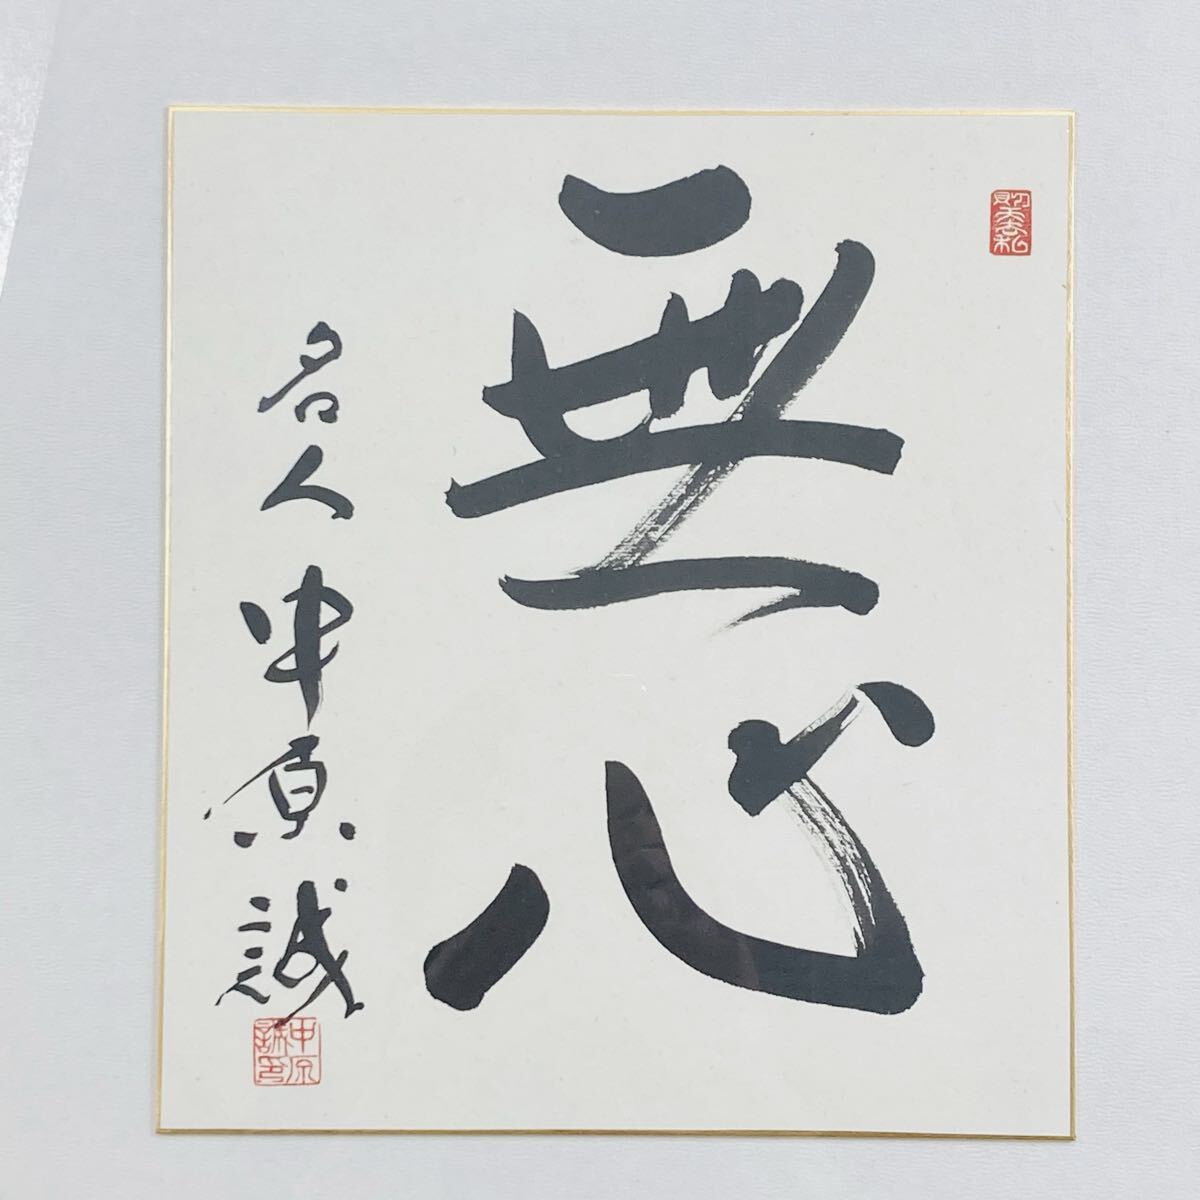 無心
名人中原誠
中原誠印